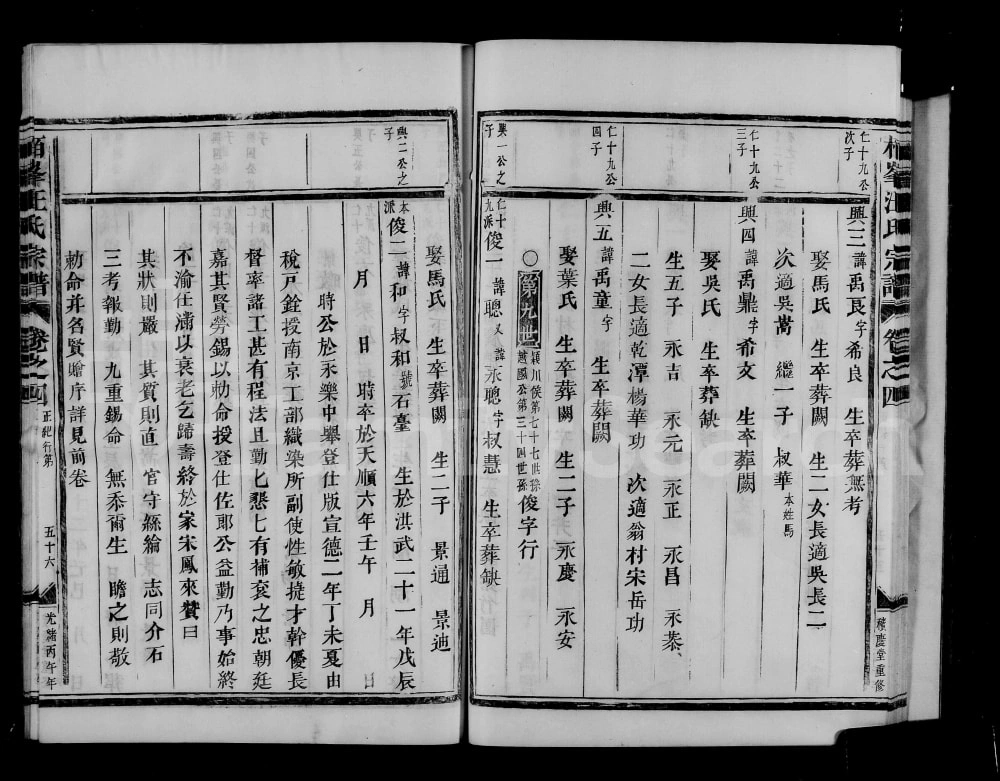 汪氏宗譜 卷之四
積慶堂重修
仁十九公次子
興三 諱禹良字希良 生卒葬無考
娶馬氏 生卒葬闕 生二女長適吳長二
次適吳蒿 繼一子 叔華 本姓馬
仁十九公三子
興四 諱禹鼎字希文 生卒葬闕
娶吳氏 生卒葬缺
生五子 永吉 永元 永正 永昌 永泰
二女長適乾潭楊華功 次適翁村宋岳功
仁十九公四子
興五 諱禹童字 生卒葬闕
娶葉氏 生卒葬闕 生二子 永慶 永安
○第九世 潁川侯第七十七世孫 越國公第三十四世孫 俊字行
興一公之子
仁十九派 俊一 諱聰又諱永聰字叔慧 生卒葬缺
娶馬氏 生卒葬闕 生二子 景通 景迪
興二公之子
本派 俊二 諱和字叔和號石臺 生於洪武二十一年戊辰
月 日 時卒於天順六年壬午 月 日
時公於永樂中舉登仕版宣德二年丁未夏由
稅戶銓授南京工部織染所副使性敏撓才幹優長
督率諸工甚有程法且勤匕懇匕有補袞之忠朝廷
嘉其賢勞錫以勅命授登仕佐郎公益勤乃事始終
不渝任滿以衰老乞歸壽終於家宋鳳來贊曰
其狀則嚴 其質則直 官守絲綸 志同介石
三考報勤 九重錫命 無忝爾生 瞻之則敬
勅命并名賢贈序詳見前卷
汪氏宗譜 卷之四 正紀行第 五十六 光緒丙午年